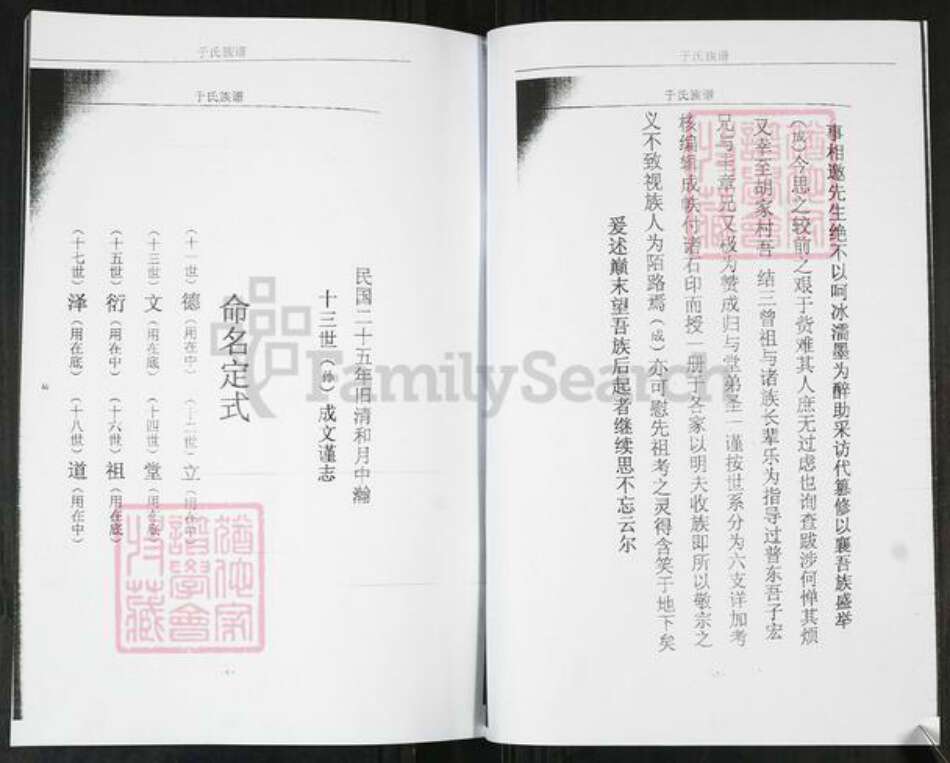 于氏族谱
于氏族谱
事相邀先生绝不以呵冰濡墨为醉助采访代篡修以襄吾族盛举
(成)今思之较前之艰于赀难其人庶无过虑也询查跋涉何惮其烦
又幸至胡家村吾 结三曾祖与诸族长辈乐为指导过普东吾子宏
兄与丰章兄又极为赞成归与堂弟圣一谨按世系分为六支详加考
核编缉成帙付诸石印而授一册于各家以明夫收族即所以敬宗之
义不致视族人为陌路焉(成)亦可慰先祖考之灵得含笑于地下矣
爰述巅末望吾族后起者继续思不忘云尔
于氏族谱
于氏族谱
民国二十五年旧清和月中瀚
十三世(孙)成文谨志
命名定式
(十一世)德(用在中) (十二世)立(用在中)
(十三世)文(用在底) (十四世)堂(用在底)
(十五世)衍(用在中) (十六世)祖(用在底)
(十七世)泽(用在底) (十八世)道(用在中)
猶他家譜學會收藏
猶他家譜學會收藏
FamilySearch